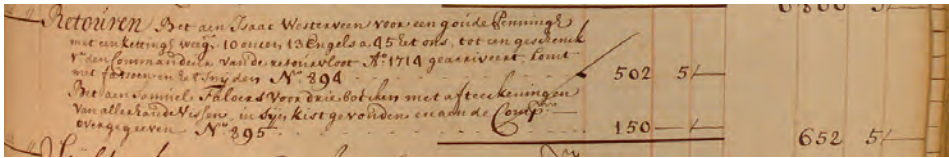 6800 5/–
Retouren Bet aen Isaac Westerveen voor een goude Penningh
met een kettingh weeg. 10 oncen, 13 Engels a 45 het ons, tot een geschenck
vr. den Commandeur van de retourvloot Ao. 1714 gearriveert, komt
met fatsoen en het snyden No. 894 502 5/–
Bet aen Samuel Faloers voor drie boecken met afteeckeningen
van allerhande vissen, in syn kist gevonden en aen de Compe.
overgegeven No. 895 150 – /–
652 5/–